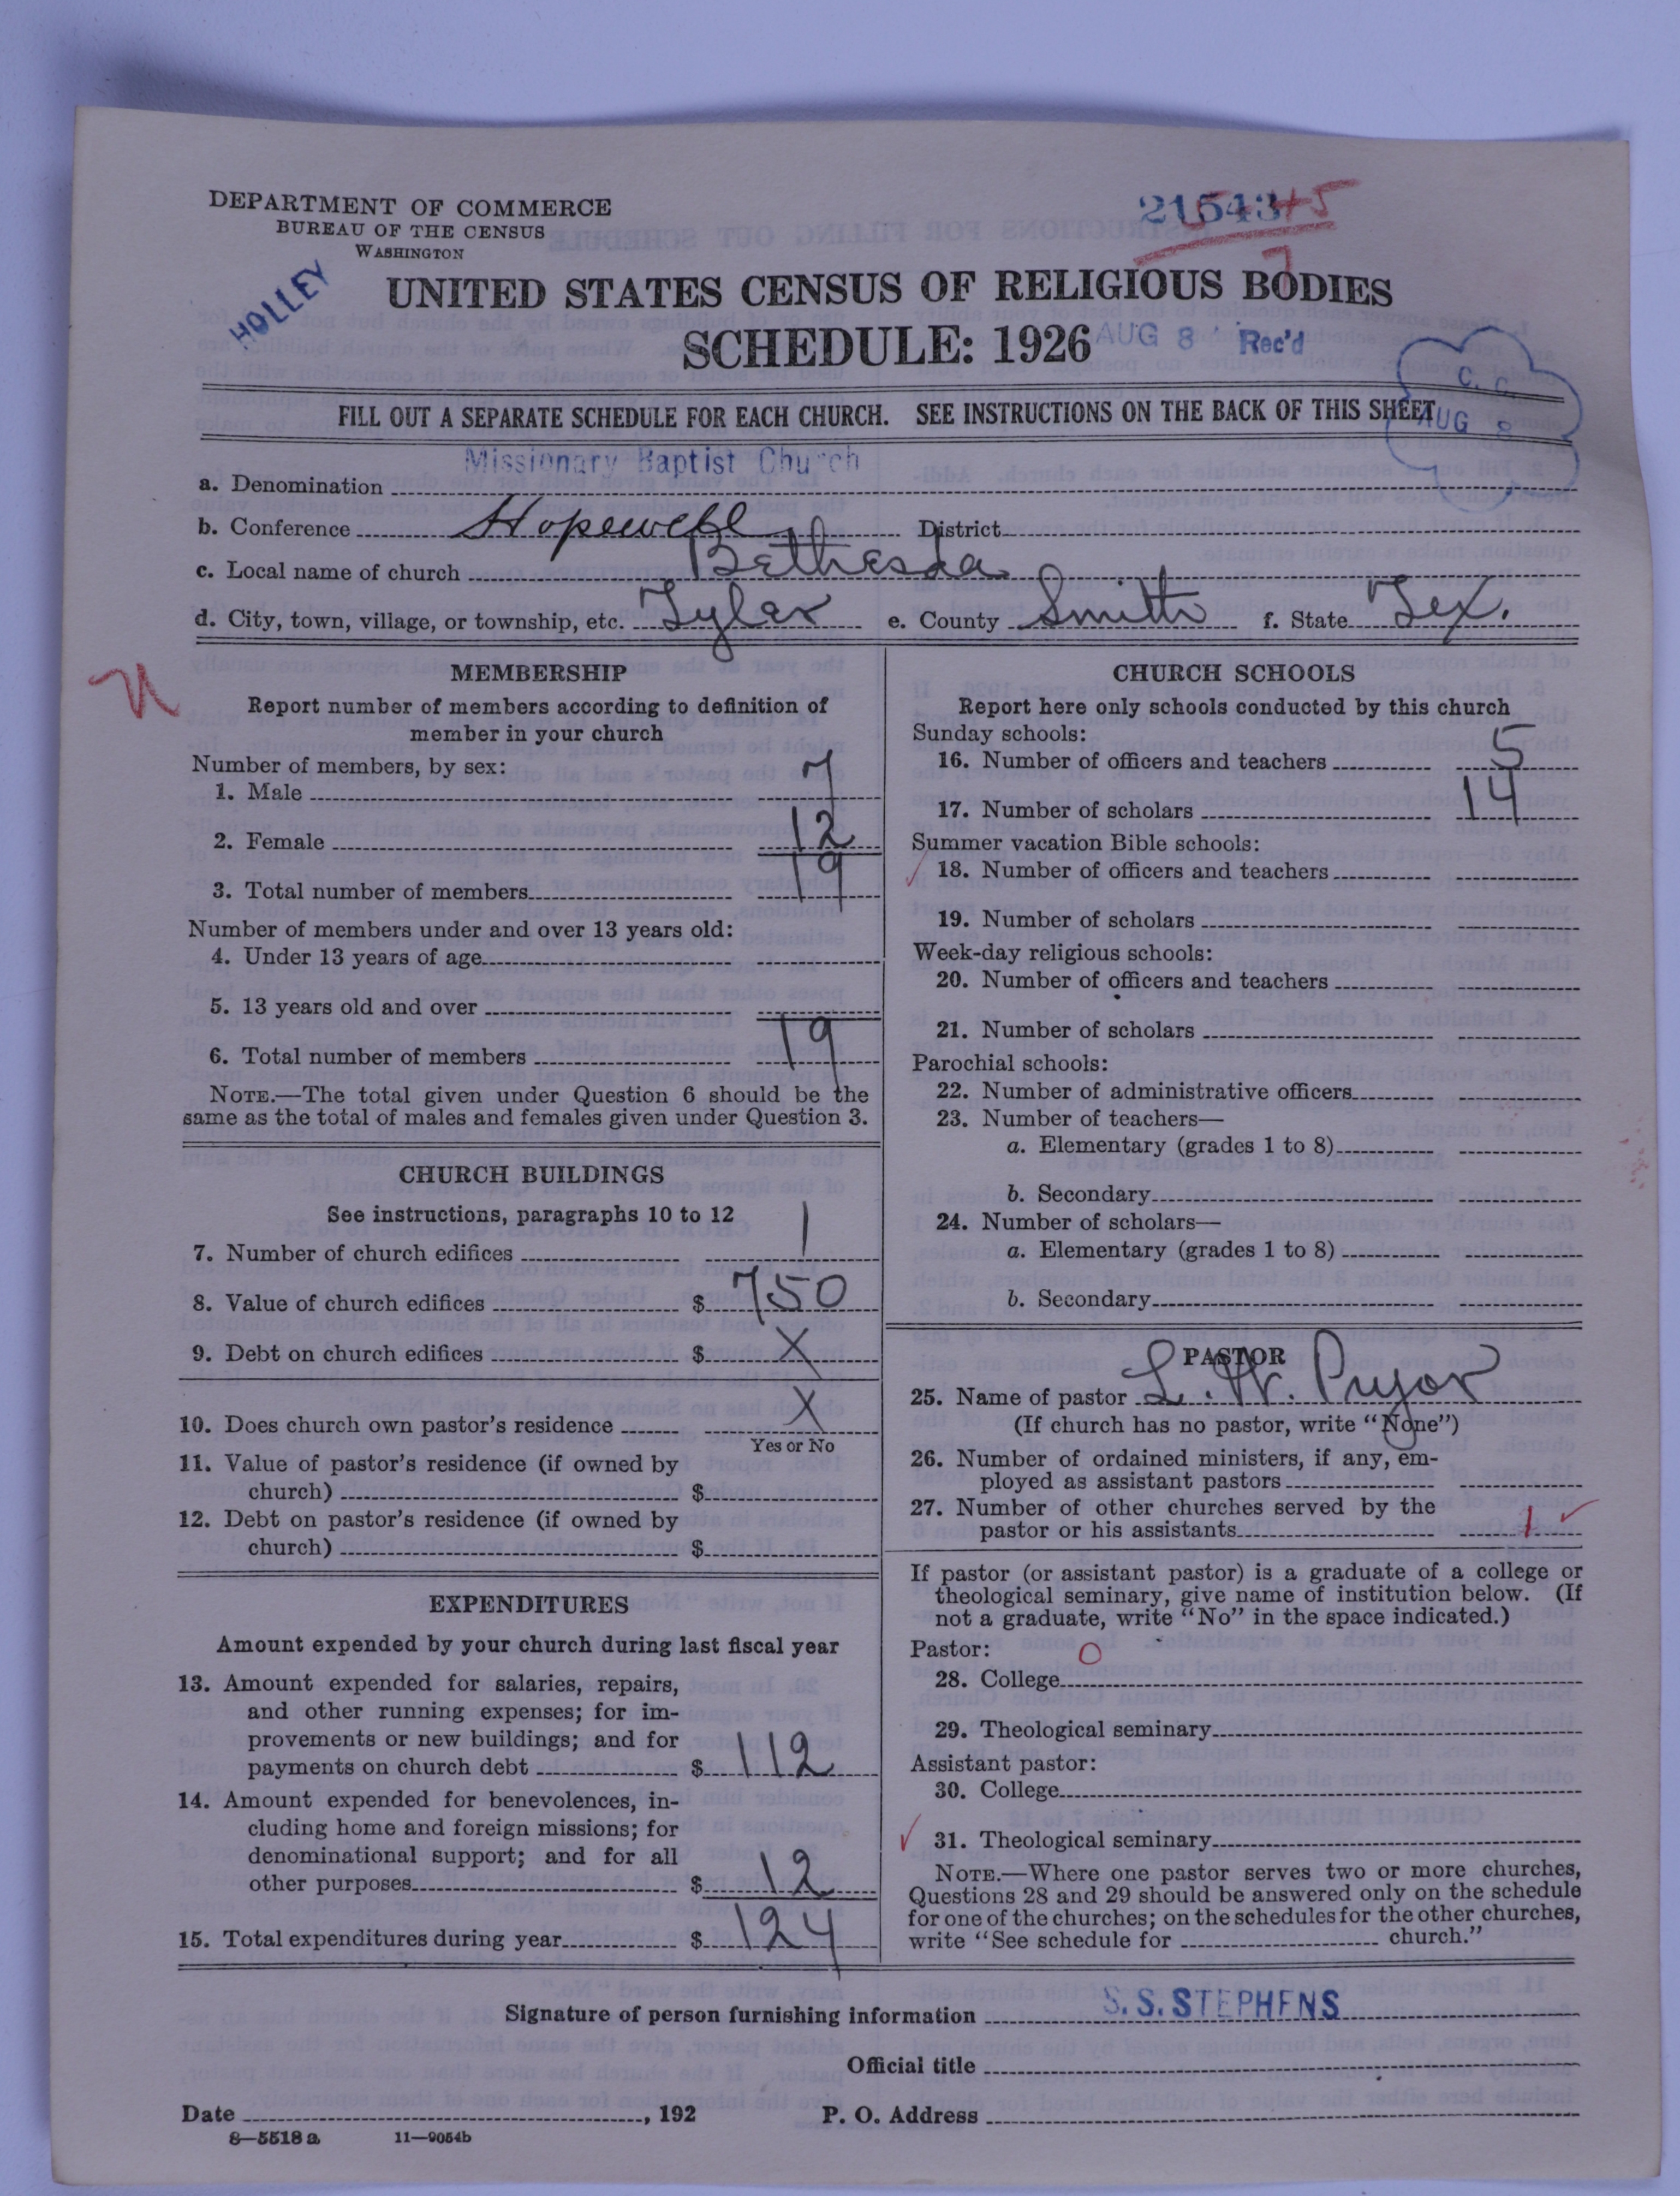 DEPARTMENT OF COMMERCE
BUREAU OF THE CENSUS
WASHINGTON
HOLLEY
UNITED STATES CENSUS OF RELIGIOUS BODIES
SCHEDULE: 1926
AUG 8 Rec'd
C. C.
AUG 8
FILL OUT A SEPARATE SCHEDULE FOR EACH CHURCH. SEE INSTRUCTIONS ON THE BACK OF THIS SHEET
Missionary Baptist Church
a. Denomination
b. Conference Hopewell District
c. Local name of church Bethesda
d. City, town, village, or township, etc. Tyler e. County Smith f. State Tex.
MEMBERSHIP
Report number of members according to definition of
member in your church
Number of members, by sex:
1. Male 7
2. Female 12
3. Total number of members 19
Number of members under and over 13 years old:
4. Under 13 years of age
5. 13 years old and over
6. Total number of members 19
NOTE.—The total given under Question 6 should be the
same as the total of males and females given under Question 3.
CHURCH BUILDINGS
See instructions, paragraphs 10 to 12
7. Number of church edifices 1
8. Value of church edifices $ 750
9. Debt on church edifices $ X
10. Does church own pastor's residence X
Yes or No
11. Value of pastor's residence (if owned by
church) $
12. Debt on pastor's residence (if owned by
church) $
EXPENDITURES
Amount expended by your church during last fiscal year
13. Amount expended for salaries, repairs,
and other running expenses; for im-
provements or new buildings; and for
payments on church debt $ 112
14. Amount expended for benevolences, in-
cluding home and foreign missions; for
denominational support; and for all
other purposes $ 12
15. Total expenditures during year $ 124
CHURCH SCHOOLS
Report here only schools conducted by this church
Sunday schools:
16. Number of officers and teachers 5
17. Number of scholars 14
Summer vacation Bible schools:
18. Number of officers and teachers
19. Number of scholars
Week-day religious schools:
20. Number of officers and teachers
21. Number of scholars
Parochial schools:
22. Number of administrative officers
23. Number of teachers—
a. Elementary (grades 1 to 8)
b. Secondary
24. Number of scholars—
a. Elementary (grades 1 to 8)
b. Secondary
PASTOR
25. Name of pastor L. W. Pryor
(If church has no pastor, write "None")
26. Number of ordained ministers, if any, em-
ployed as assistant pastors
27. Number of other churches served by the
pastor or his assistants 1 ✓
If pastor (or assistant pastor) is a graduate of a college or
theological seminary, give name of institution below. (If
not a graduate, write "No" in the space indicated.)
Pastor: 0
28. College
29. Theological seminary
Assistant pastor:
30. College
31. Theological seminary
NOTE.—Where one pastor serves two or more churches,
Questions 28 and 29 should be answered only on the schedule
for one of the churches; on the schedules for the other churches,
write "See schedule for church."
Signature of person furnishing information S. S. STEPHENS
Official title
Date , 192 P. O. Address
8—5518 a 11—9054b